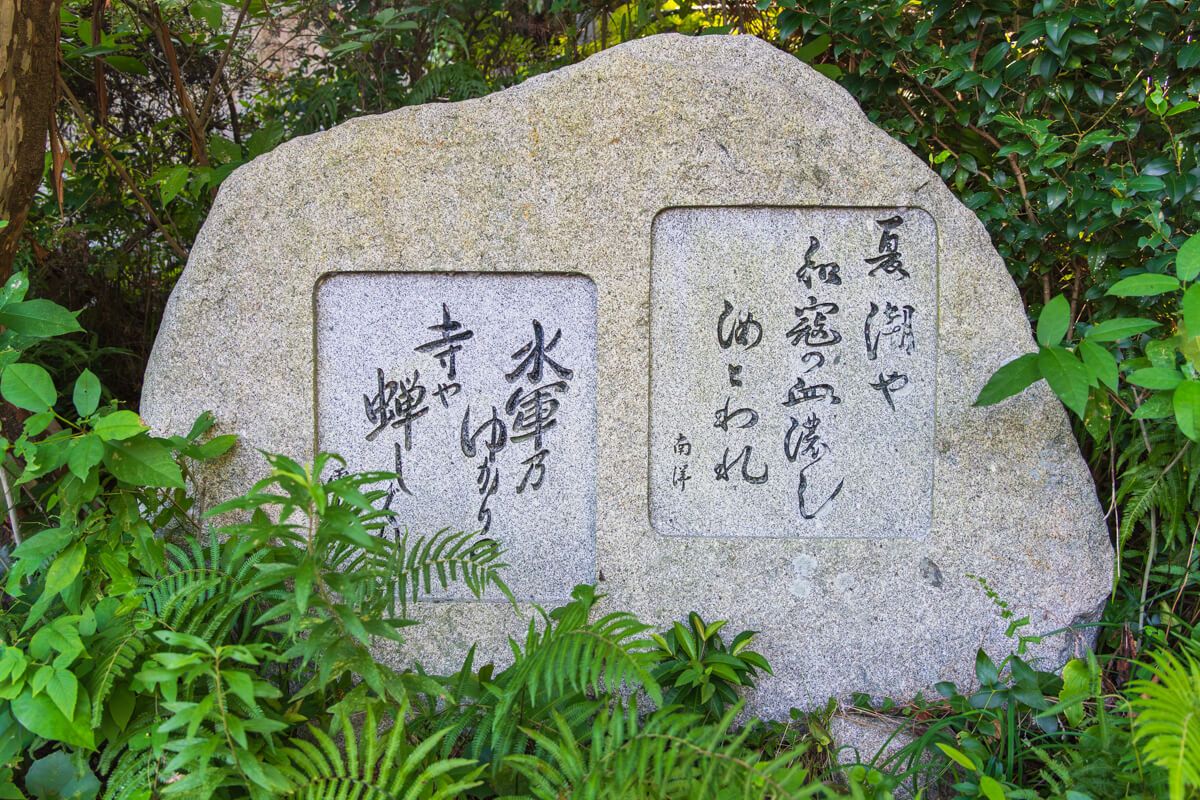 夏潮や
和寇の血濃し
汝とわれ
南洋
水軍乃
ゆかりの
寺や
蝉しぐ